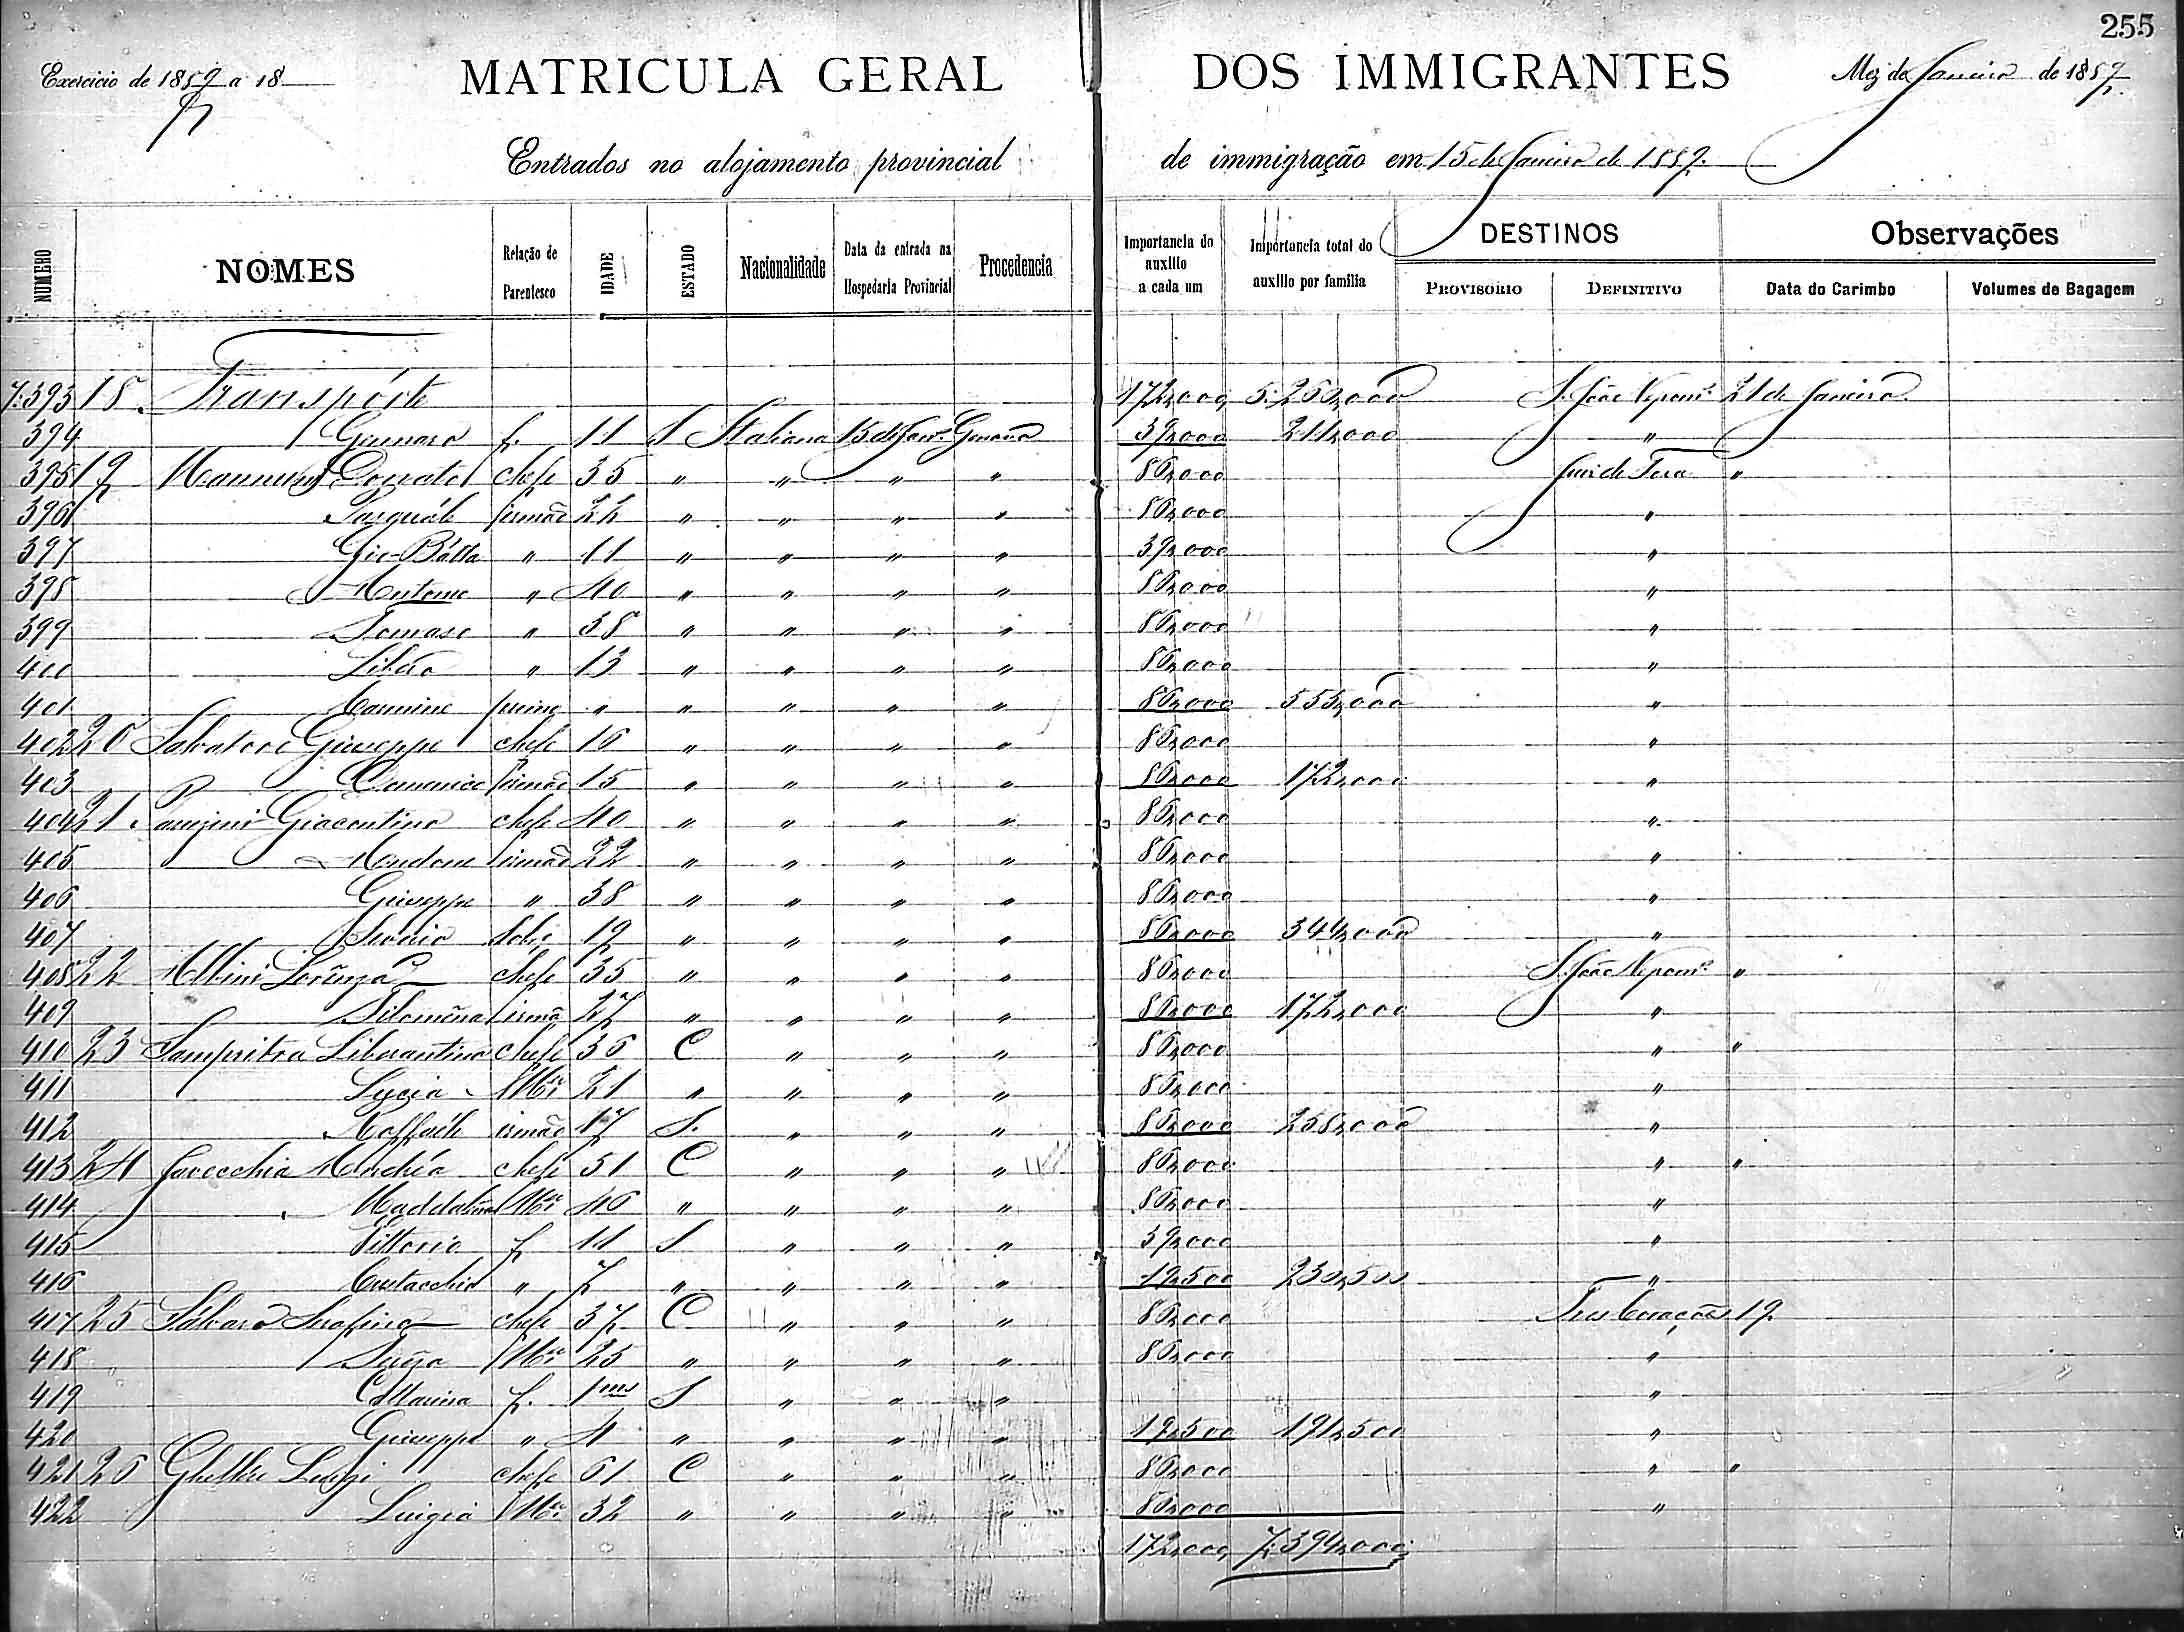 255
Exercicio de 1889 a 18
MATRICULA GERAL DOS IMMIGRANTES
Mez de Janeiro de 1889
Entrados no alojamento provincial de immigração em 15 de Janeiro de 1889.
NUMERO NOMES Relação de Parentesco IDADE ESTADO Nacionalidade Data da entrada na Hospedaria Provincial Procedencia Importancia do auxilio a cada um Importancia total do auxilio por familia DESTINOS PROVISORIO DEFINITIVO Observações Data do Carimbo Volumes de Bagagem
7.393 18 Transpórte 172,000 5:260,000 S. João Nepom.º 21 de Janeiro
394 Gennaro f. 11 S Italiana 15 de Jan.º Genova 39,000 211,000 "
395 19 Donato chefe 35 " " " " 86,000 Juiz de Fora "
396 Pasquále irmão 22 " " " " 86,000 "
397 Gio-Bátta " 11 " " " " 39,000 "
398 Antonio " 40 " " " " 86,000 "
399 Tomaso " 38 " " " " 86,000 "
400 Libero " 13 " " " " 86,000 "
401 Carmine primo " " " " " 86,000 555,000 "
402 20 Salvatore Giuseppe chefe 16 " " " " 86,000 "
403 Domenico irmão 15 " " " " 86,000 172,000 "
404 21 Giacontino chefe 40 " " " " 86,000 "
405 irmão 22 " " " " 86,000 "
406 Giuseppe " 38 " " " " 86,000 "
407 sob.º 19 " " " " 86,000 344,000 "
408 22 Albini Lorenza chefe 35 " " " " 86,000 S. João Nepom.º "
409 Filomena irmã 27 " " " " 86,000 172,000 "
410 23 Liberantino chefe 36 C " " " 86,000 " "
411 Lucia M.er 21 " " " " 86,000 "
412 Raffaéle irmão 17 S. " " " 86,000 258,000 "
413 24 Javecchia Andréa chefe 51 C " " " 86,000 " "
414 Maddalena M.er 46 " " " " 86,000 "
415 Vittorio f 11 S " " " 39,000 "
416 Eustacchio " 7 " " " " 19,500 230,500 "
417 25 Serafino chefe 37 C " " " 86,000 Tres Corações 19
418 M.er 25 " " " " 86,000 "
419 Marina f. 1 mes S " " " "
420 Giuseppe " 4 " " " " 19,500 191,500 "
421 26 Luigi chefe 61 C " " " 86,000 " "
422 Luigia M.er 32 " " " " 86,000 "
172,000 7:394,000